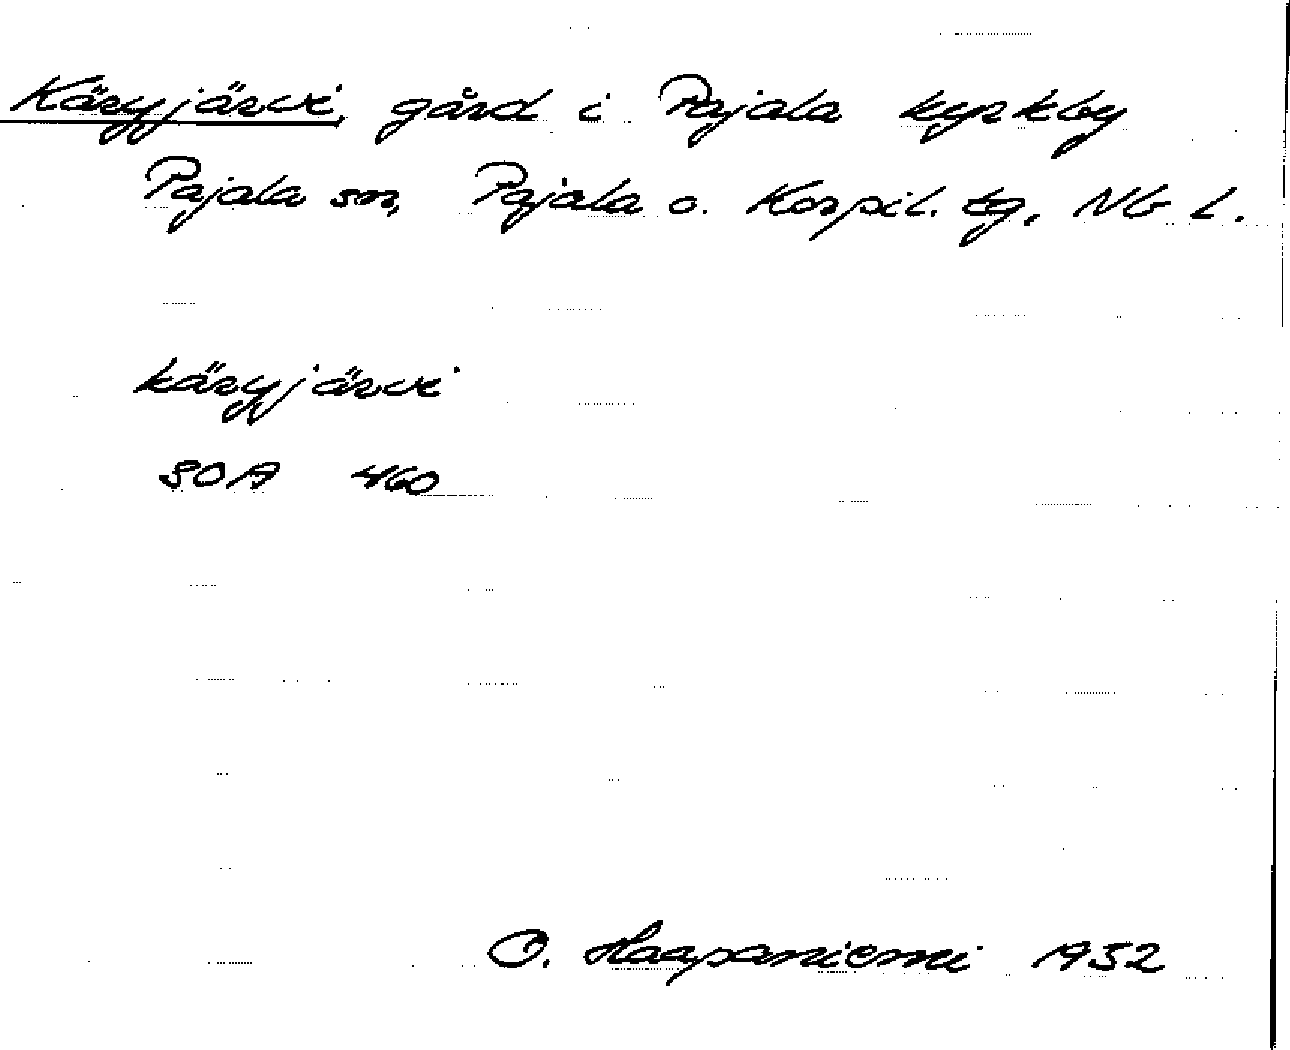 Käryjärvi, gård i Pajala kyrkby
Pajala sn, Pajala o. Korpil. tg, Nb L.
käryjärvi
SOA 460
O. Haapaniemi 1932